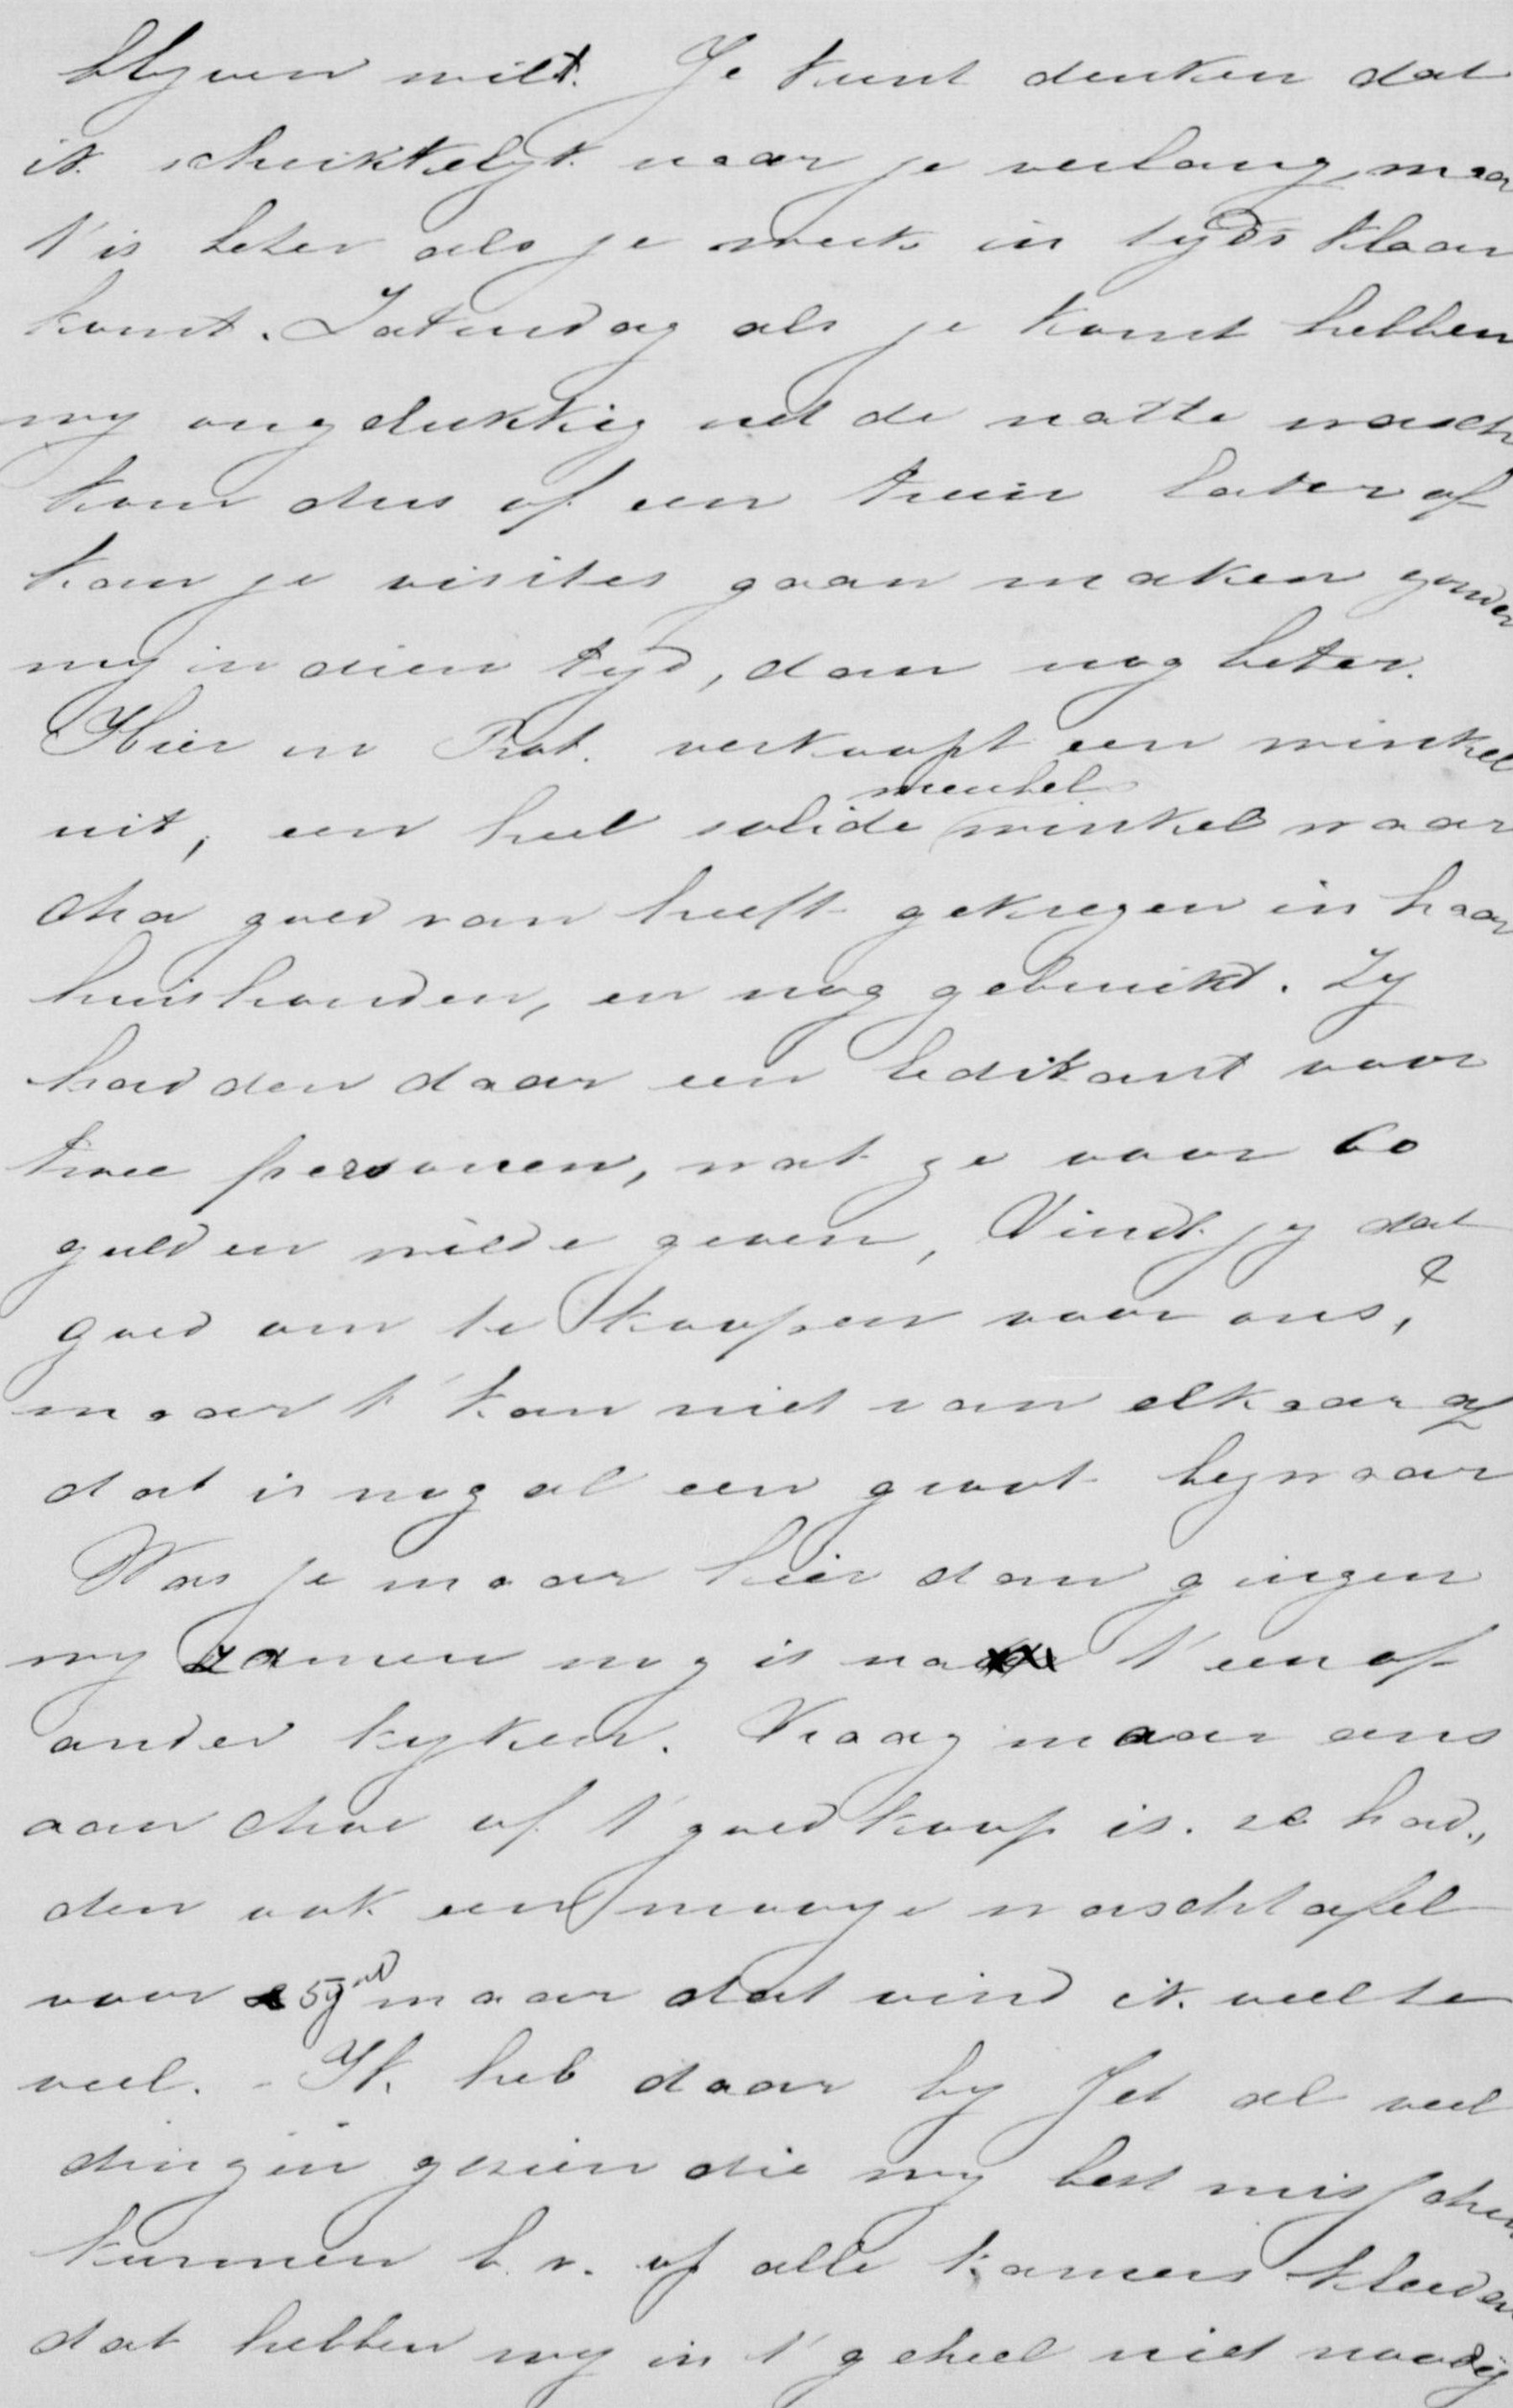 blyven wilt. Je kunt denken dat
ik schrikkelyk naar je verlang, maar
t'is beter als je werk in tyds klaar
komt. Zaturdag als je komt hebben
wy ongelukkig net de natte wasch
kom dus of een trein later of
kan je visites gaan maken zonder
my in dien tyd, dan nog beter.
Hier in Rot. verkoopt een winkel
uit, een heel solide meubel winkel waar
Cha goed van heeft gekregen in haar
huishouden, en nog gebruikt. Zy
hadden daar een ledikant voor
twee personen, wat ze voor 60
gulden wilde geven, Vindt jy dat
goed om te koopen voor ons,?
maar t' kan niet van elkaar af
dat is nog al een groot bezwaar
Was je maar hier dan gingen
wy zamen nog is na t' een of
ander kyken. Vraag maar ens
aan Cha of t' goedkoop is. ze had„
den ook een mooye waschtafel
voor 59 gld maar dat vind ik veel te
veel. - Ik heb daar by Jet al veel
dingen gezien die wy best mischen
kunnen b.v. op alle kamers kleeden
dat hebben wy in t' geheel niet noodig